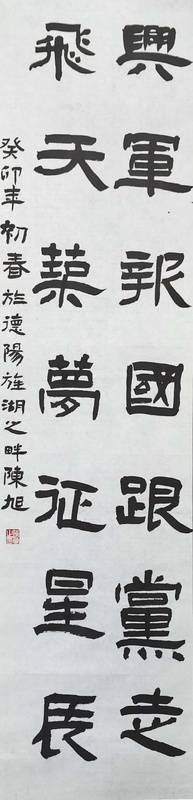 興軍報國跟黨走
飛天築夢征星辰
癸卯年初春於德陽旌湖之畔陳旭